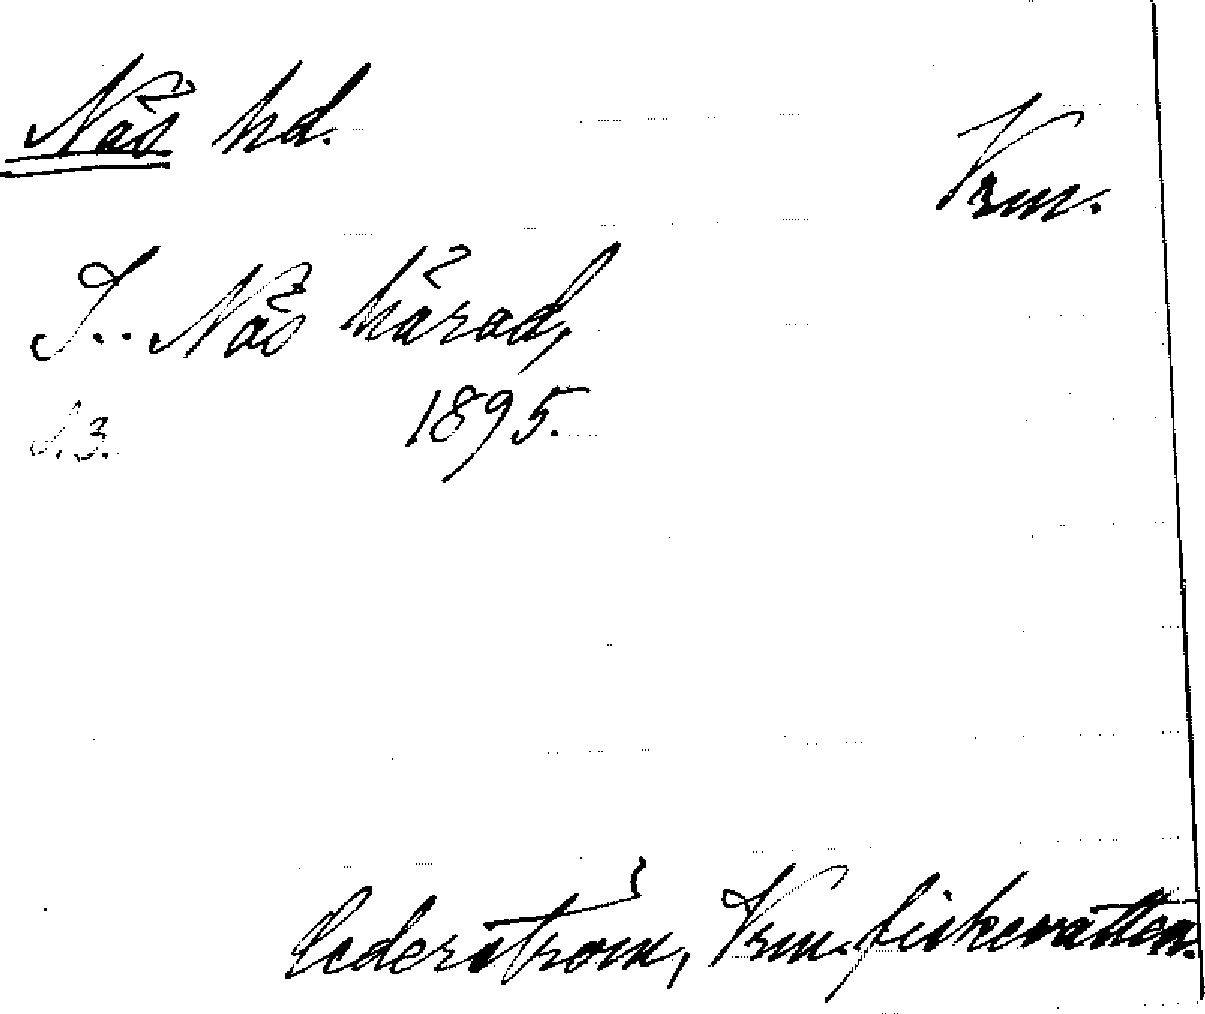 Näs hd.
Vrm.
I.. Näs härad,
s. 3. 1895.
Cederström, Vrm. fiskevatten.